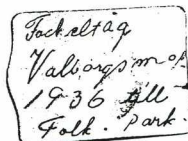 Fackeltåg
Valborgsm
1936 till
Folk. Park.